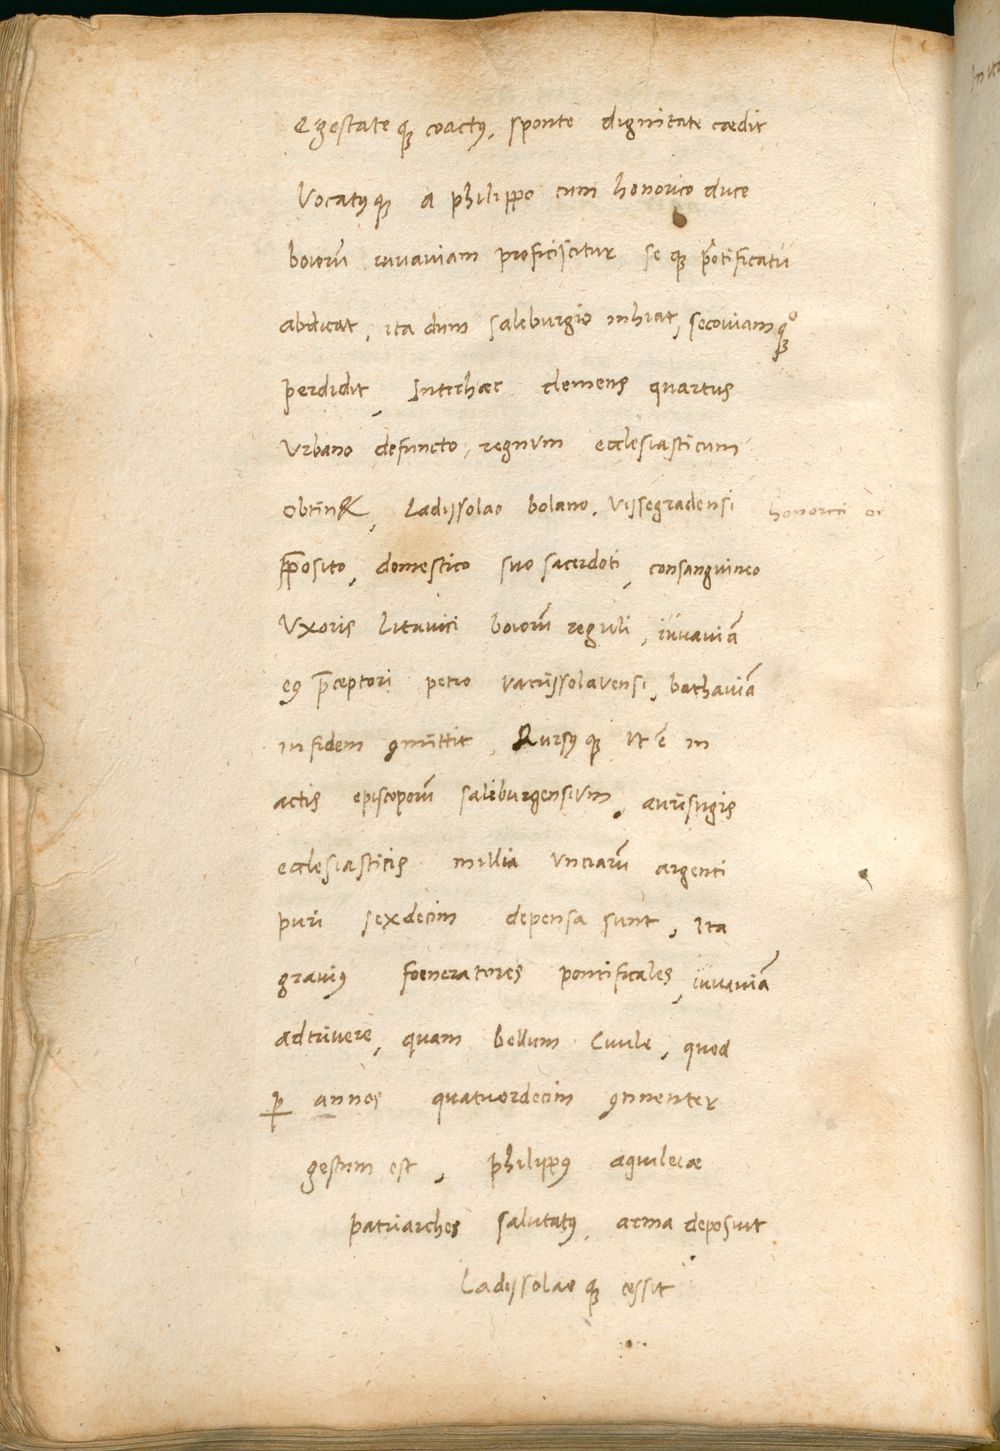 egestate qꝫ coactꝰ, sponte dignitate cædit
Vocatꝰ qꝫ a philippo cum honorico duce
boioꝝ iuuauiam proficiscitur se qꝫ põtificatu
abdicat, ita dum saleburgio inhiat, secouiam qꝫ
perdidit, Interhæc clemens quartus
Vrbano defuncto, regnum ecclesiasticum
Obtin&, Ladijsolao bolano, Vissegradensi honorici
p̄posito, domestico suo sacerdoti, consanguineo
Vxoris Litauici boioꝝ reguli, iuuauiā
eꝰ p̄ceptori petro vatrissolavensi, bathauiā
in fidem ꝯmittit, Rursꝰ qꝫ vt ē in
actis episcopoꝝ saleburgensium, aurisugis
ecclesiasticis millia Vnciarū argenti
puri sexdecim depensa sunt, Ita
grauiꝰ foeneratores pontificales, iuuauiā
adtrivere, quam bellum Ciuile, quod
ꝑ annos quatuordecim ꝯnnenter
gestum est, philippꝰ aquileiæ
patriarches salutatꝰ, arma deposuit
Ladijsolao qꝫ cessit